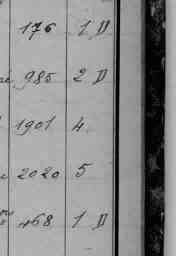 176 1 D
985 2 D
1901 4
2020 5
468 1 D